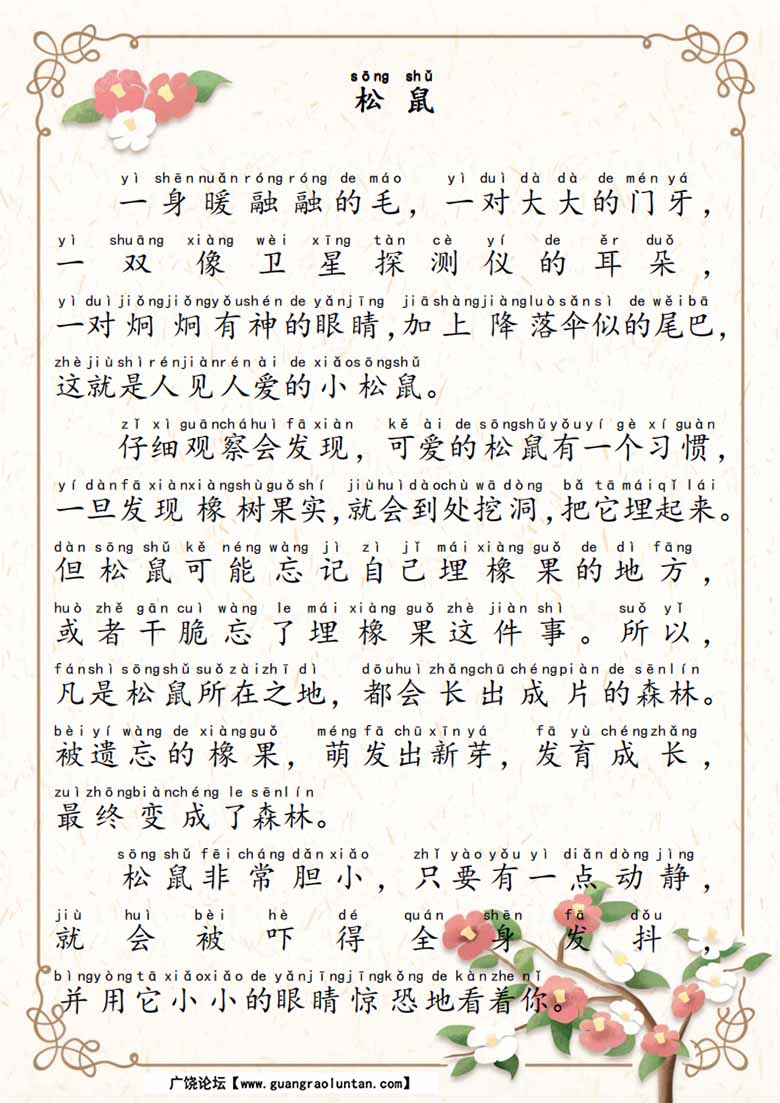 sōng shǔ
松鼠
yì shēnnuǎnróngróng de máo yì duì dà dà de mén yá
一身暖融融的毛，一对大大的门牙，
yì shuāng xiàng wèi xīng tàn cè yí de ěr duǒ
一双像卫星探测仪的耳朵，
yì duì jiǒngjiǒngyǒushén de yǎnjīng jiāshàngjiàngluòsǎnsì de wěibā
一对炯炯有神的眼睛,加上降落伞似的尾巴，
zhè jiù shì rénjiànrén ài de xiǎosōngshǔ
这就是人见人爱的小松鼠。
zǐ xì guāncháhuì fā xiàn kě ài de sōngshǔyǒuyí gè xí guàn
仔细观察会发现，可爱的松鼠有一个习惯，
yí dànfā xiànxiàngshùguǒshí jiùhuìdàochù wā dòng bǎ tā máiqǐ lái
一旦发现橡树果实,就会到处挖洞,把它埋起来。
dàn sōng shǔ kě néng wàng jì zì jǐ mái xiàng guǒ de dì fāng
但松鼠可能忘记自己埋橡果的地方，
huò zhě gān cuì wàng le mái xiàng guǒ zhè jiàn shì suǒ yǐ
或者干脆忘了埋橡果这件事。所以，
fánshì sōngshǔ suǒ zàizhī dì dōuhuì zhǎngchū chéngpiàn de sēnlín
凡是松鼠所在之地，都会长出成片的森林。
bèi yí wàng de xiàngguǒ méng fā chū xīn yá fā yù chéngzhǎng
被遗忘的橡果，萌发出新芽，发育成长，
zuì zhōngbiànchéng le sēnlín
最终变成了森林。
sōng shǔ fēi cháng dǎn xiǎo zhǐ yàoyǒu yì diǎn dòng jìng
松鼠非常胆小，只要有一点动静，
jiù huì bèi hè dé quán shēn fā dǒu
就会被吓得全身发抖，
bìngyòng tā xiǎoxiǎo de yǎnjīngjīngkǒng de kàn zhe nǐ
并用它小小的眼睛惊恐地看着你。
广饶论坛【www.guangraoluntan.com】